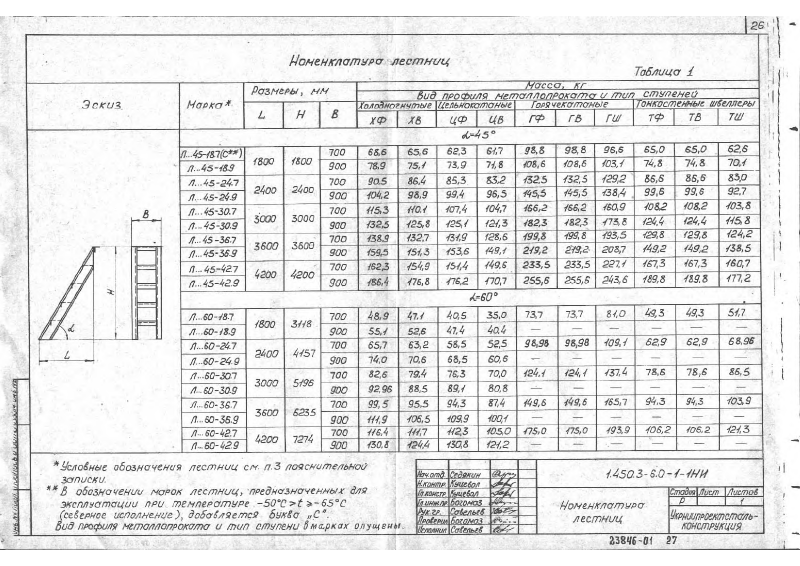 26
Номенклатура лестниц
Таблица 1
Эскиз Марка* Размеры, мм Масса, кг
Вид профиля металлопроката и тип ступеней
L H В Холодногнутые Цельнокатаные Горячекатаные Тонкостенные швеллеры
ХФ ХВ ЦФ ЦВ ГФ ГВ ГШ ТФ ТВ ТШ
α=45°
Л...45-18.7(С**) 1800 1800 700 68,6 65,6 62,3 61,7 98,8 98,8 96,6 65,0 65,0 62,6
Л...45-18.9 900 78,9 75,1 73,9 71,8 108,6 108,6 103,1 74,8 74,8 70,1
Л...45-24.7 2400 2400 700 90,5 86,4 85,3 83,2 132,5 132,5 129,2 86,6 86,6 83,0
Л...45-24.9 900 104,2 98,9 99,4 96,5 145,5 145,5 138,4 99,6 99,6 92,7
Л...45-30.7 3000 3000 700 115,3 110,1 107,4 104,7 166,2 166,2 160,9 108,2 108,2 103,8
Л...45-30.9 900 132,5 125,8 125,1 121,3 182,3 182,3 173,8 124,4 124,4 115,8
Л...45-36.7 3600 3600 700 138,9 132,7 131,9 128,6 199,8 199,8 193,5 129,8 129,8 124,2
Л...45-36.9 900 159,5 151,3 153,6 149,1 219,2 219,2 208,7 149,2 149,2 138,5
Л...45-42.7 4200 4200 700 162,3 154,9 151,4 149,6 233,5 233,5 227,1 167,3 167,3 160,7
Л...45-42.9 900 186,4 176,8 176,2 170,7 255,6 255,6 243,6 189,8 189,8 177,2
α=60°
Л...60-18.7 1800 3118 700 48,9 47,1 40,5 35,0 73,7 73,7 81,0 49,3 49,3 51,7
Л...60-18.9 900 55,1 52,6 47,4 40,4 — — — — — —
Л...60-24.7 2400 4157 700 65,7 63,2 58,5 52,5 98,98 98,98 109,1 62,9 62,9 68,96
Л...60-24.9 900 74,0 70,6 68,5 60,6 — — — — — —
Л...60-30.7 3000 5196 700 82,6 79,4 76,3 70,0 124,1 124,1 137,4 78,6 78,6 86,5
Л...60-30.9 900 92,96 88,5 89,1 80,8 — — — — — —
Л...60-36.7 3600 6235 700 99,5 95,5 94,3 87,4 149,6 149,6 165,7 94,3 94,3 103,9
Л...60-36.9 900 111,9 106,5 109,9 100,1 — — — — — —
Л...60-42.7 4200 7274 700 116,4 111,7 112,3 105,0 175,0 175,0 193,9 106,2 106,2 121,3
Л...60-42.9 900 130,8 124,4 130,8 121,2 — — — — — —
В
Н
α
L
*Условные обозначения лестниц см. п.3 пояснительной
записки.
** В обозначении марок лестниц, предназначенных для
эксплуатации при температуре -50°С > t > -65°С
(северное исполнение), добавляется буква „С".
Вид профиля металлопроката и тип ступени в марках опущены.
Нач.отд. Седякин
Н.контр. Куцевол
Гл.констр. Куцевол
Гл.инж.пр. Богомаз
Рук.гр. Савельев
Проверил Богомаз
Исполнил Савельев
1.450.3-6.0-1-1НИ
Номенклатура
лестниц
Стадия Лист Листов
Р 1
Укрниипроектсталь-
конструкция
23846-01 27